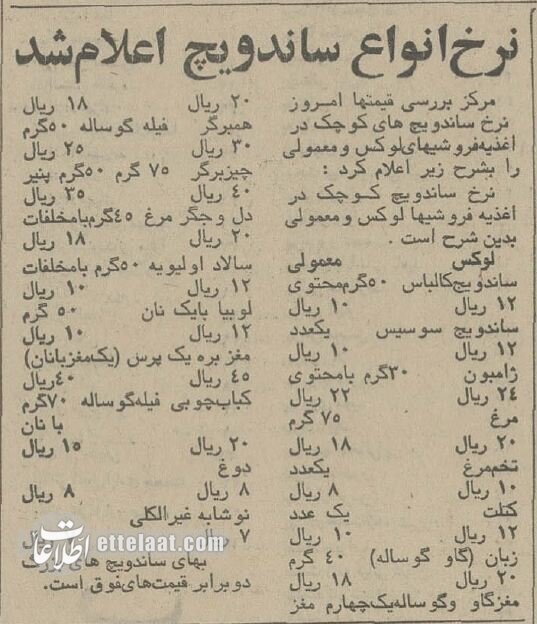 نرخ انواع ساندویچ اعلام شد
مرکز بررسی قیمتها امروز
نرخ ساندویچ های کوچک در
اغذیه فروشیهای لوکس و معمولی
را بشرح زیر اعلام کرد :
نرخ ساندویچ کوچک در
اغذیه فروشیها لوکس و معمولی
بدین شرح است .
لوکس معمولی
ساندویچ کالباس ۵۰ گرم محتوی
۱۲ ریال ۱۰ ریال
ساندویچ سوسیس یکعدد
۱۲ ریال ۱۰ ریال
ژامبون ۳۰ گرم بامحتوی
۲۴ ریال ۲۲ ریال
مرغ ۷۵ گرم
۲۰ ریال ۱۸ ریال
تخم مرغ یکعدد
۱۰ ریال ۸ ریال
کتلت یک عدد
۱۲ ریال ۱۰ ریال
زبان (گاو گوساله) ۴۰ گرم
۲۰ ریال ۱۸ ریال
مغزگاو وگوساله یک چهارم مغز
۲۰ ریال ۱۸ ریال
همبرگر فیله گوساله ۵۰ گرم
۳۰ ریال ۲۵ ریال
چیزبرگر ۷۵ گرم ۵۰ گرم پنیر
۴۰ ریال ۳۵ ریال
دل و جگر مرغ ۴۵ گرم بامخلفات
۲۰ ریال ۱۸ ریال
سالاد اولیویه ۵۰ گرم بامخلفات
۱۲ ریال ۱۰ ریال
لوبیا بایک نان ۵۰ گرم
۱۲ ریال ۱۰ ریال
مغز بره یک پرس (یک مغز بانان)
۴۵ ریال ۴۰ ریال
کباب چوبی فیله گوساله ۷۰ گرم
با نان
۲۰ ریال ۱۵ ریال
دوغ
۸ ریال ۸ ریال
نوشابه غیر الکلی
۷
بهای ساندویچ های
دو برابر قیمت‌های فوق است.
اطلاعات ettelaat.com